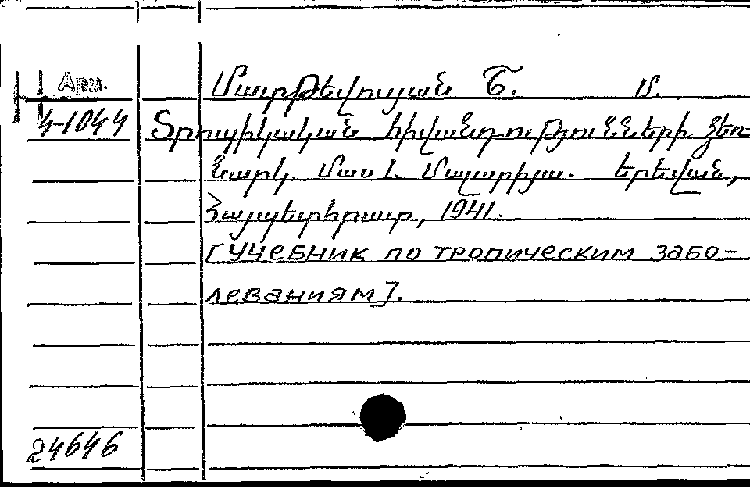 Арм.
4-1044
Մարթելույան Ե. Ս.
Տրոպիկական հիվանդությունների ձեռ
նարկ. Մաս 1. Մալարիա. Երեվան,
Հայպետհրատ, 1941.
[Учебник по тропическим забо-
леваниям].
24646